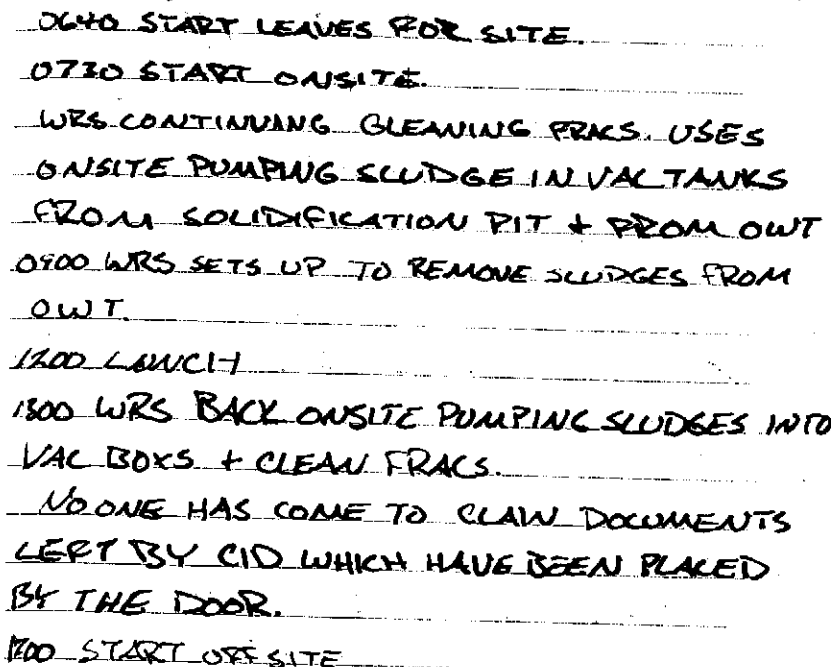 0640 START LEAVES FOR SITE.
0730 START ONSITE.
WRS CONTINUING CLEANING FRACS. USES
ONSITE PUMPING SLUDGE IN VAC TANKS
FROM SOLIDIFICATION PIT + FROM OWT
0900 WRS SETS UP TO REMOVE SLUDGES FROM
OWT.
1200 LUNCH
1300 WRS BACK ONSITE PUMPING SLUDGES INTO
VAC BOXS + CLEAN FRACS.
NO ONE HAS COME TO CLAIM DOCUMENTS
LEFT BY CID WHICH HAVE BEEN PLACED
BY THE DOOR.
1700 START OFF SITE